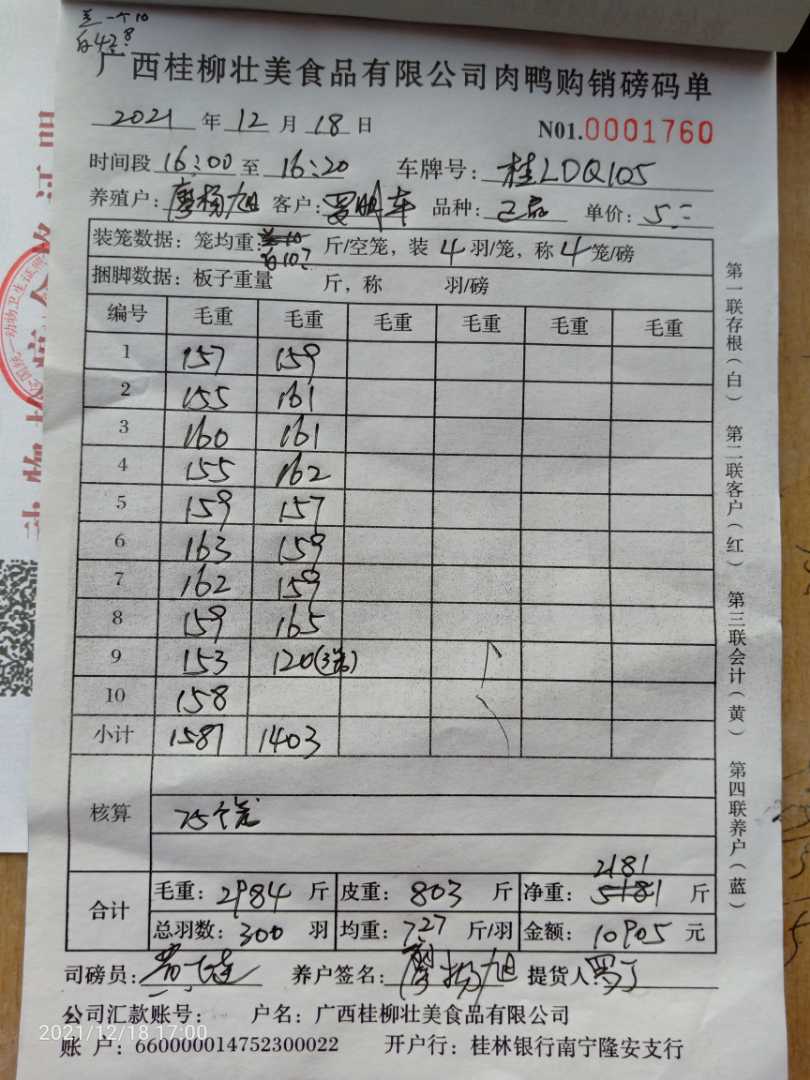 一个10
白42?
广西桂柳壮美食品有限公司肉鸭购销磅码单
2021 年 12 月 18 日 N01.0001760
时间段 16:00 至 16:20 车牌号: 桂LDQ105
养殖户: 廖杨旭 客户: 品种: 正品 单价: 5
装笼数据: 笼均重: 斤/空笼, 装 4 羽/笼, 称 4 笼/磅
捆脚数据: 板子重量 斤, 称 羽/磅
编号 毛重 毛重 毛重 毛重 毛重 毛重
1 157 159
2 155 161
3 160 161
4 155 162
5 159 157
6 163 159
7 162 159
8 159 165
9 153 120(3笼)
10 158
小计 1581 1403
核算
75个笼
2181
合计
毛重: 2984 斤 皮重: 803 斤 净重: 5181 斤
总羽数: 300 羽 均重: 7.27 斤/羽 金额: 10905 元
司磅员: 养户签名: 廖杨旭 提货人
公司汇款账号: 户名: 广西桂柳壮美食品有限公司
账 户: 660000014752300022 开户行: 桂林银行南宁隆安支行
2021/12/18 17:00
第一联存根(白) 第二联客户(红) 第三联会计(黄) 第四联养户(蓝)